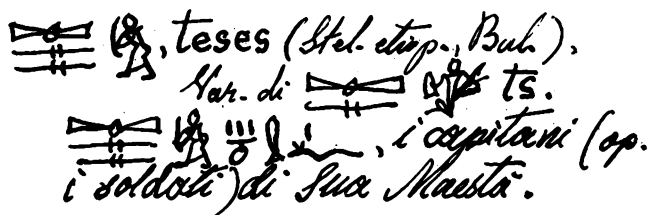 , teses (Stel. etiop., Bul.),
Var. di ts.
, i capitani (op.
i soldati) di Sua Maestà.